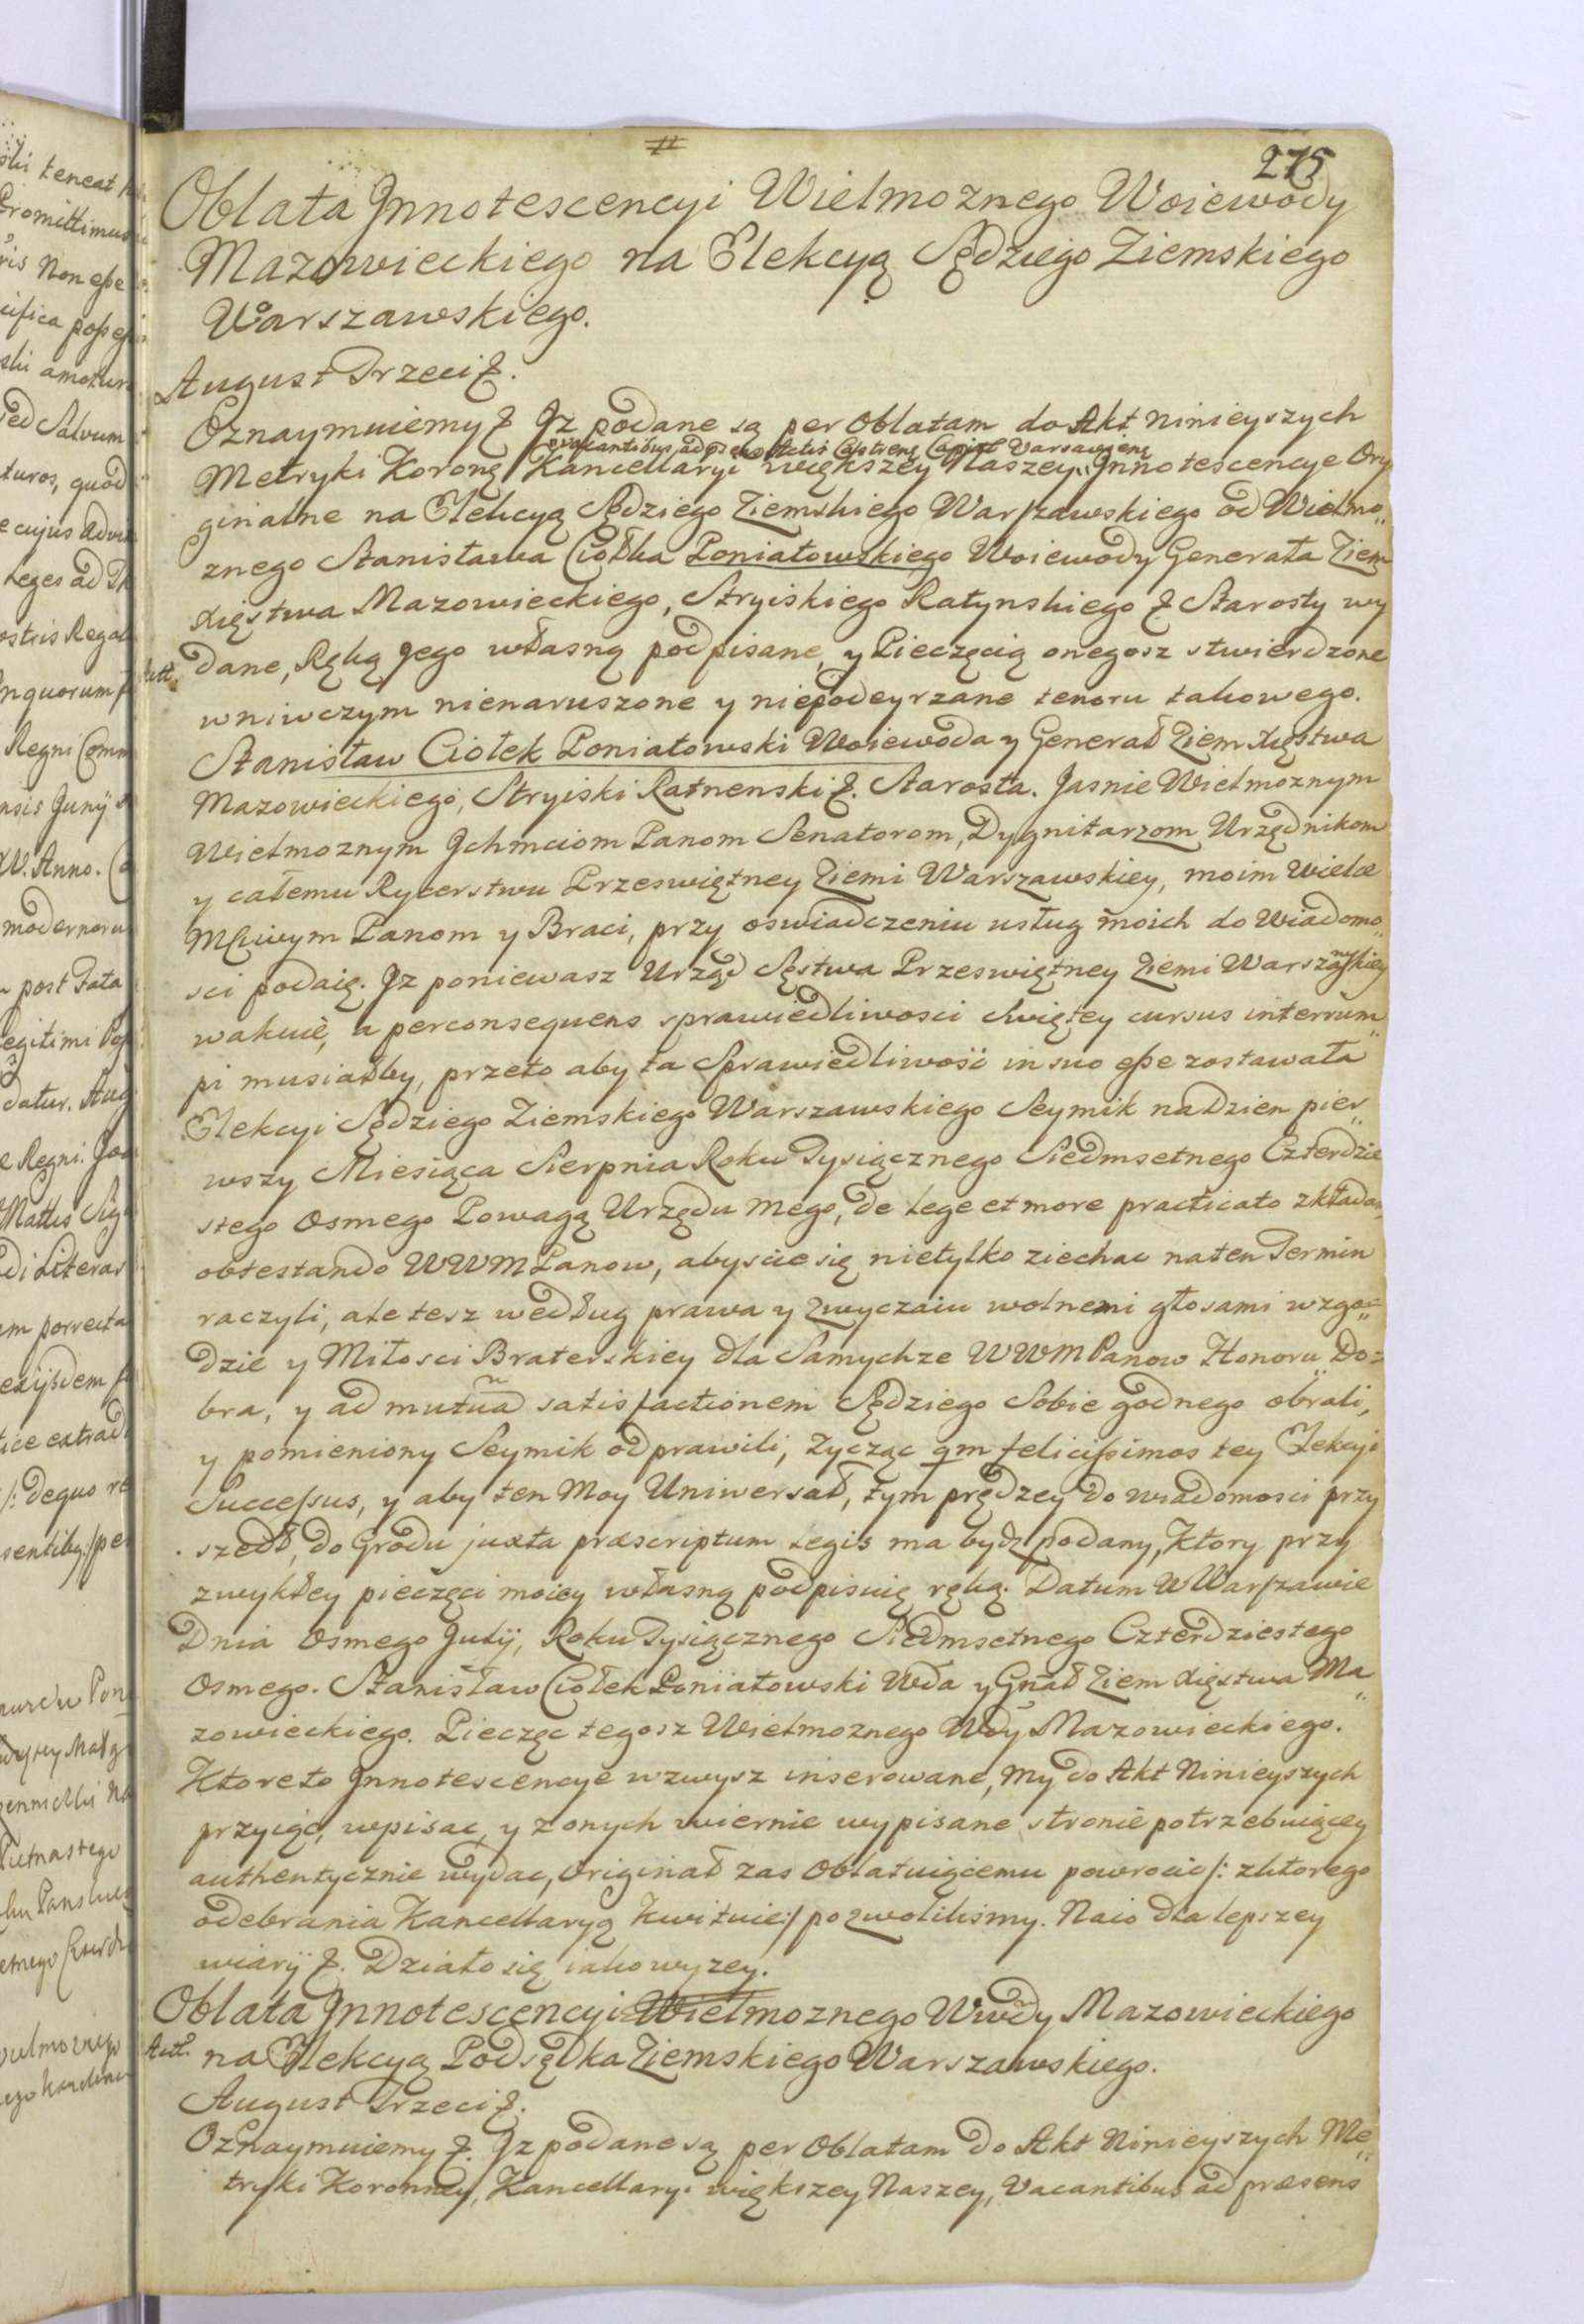 #
275
Oblata Jnnotescencyi Wielmoznego Woiewody
Mazowieckiego na Elekcyą Sędziego Ziemskiego
Warszawskiego.
August Trzeci &.
Oznaymuiemy &. Jz podane są per Oblatam do Akt ninieyszych
vacantibus ad præs Actis Castrens Capitl Varsaviens
Metryki Koroną Kancellaryi większey Naszey, Jnnotescencye Ory
ginalne na Elekcyą Sędziego Ziemskiego Warszawskiego od Wielmo„
znego Stanisława Ciołka Poniatowskiego Woiewody Generała Ziem
Xięstwa Mazowieckiego, Stryiskiego Ratynskiego &. Starosty wy
dane, Ręką Jego własną podpisane, y Pieczęcią onegosz stwierdzone
wniwczym nienaruszone y niepodeyrzane tenoru takowego.
Stanisław Ciołek Poniatowski Woiewoda y Generał Ziem Xięstwa
Mazowieckiego, Stryiski Ratnenski &. Starosta. Jasnie Wielmoznym
Wielmoznym Jchmciom Panom Senatorom, Dygnitarzom Urzędnikom
y całemu Rycerstwu Przeswiętney Ziemi Warszawskiey, moim Wielce
Mściwym Panom y Braci, przy oswiadczeniu usług moich do Wiadomo„
sci podaię. Jz poniewasz Urząd Sęstwa Przeswiętney Ziemi Warszawskiey
wakuie, a perconsequens sprawiedliwosci Swiętey cursus interrum„
pi musiałby, przeto aby ta Sprawiedliwosć in suo esse zostawała
Elekcyi Sędziego Ziemskiego Warszawskiego Seymik na Dzien pier„
wszy Miesiąca Sierpnia Roku Tysiącznego Siedmsetnego Czterdzie
stego Osmego Powagą Urzędu mego, de lege et more practicato zkładam
obtestando WWMPanow, abyscie się nietylko ziechac na ten Termin
raczyli, ale tesz według prawa y Zwyczaiu wolnemi głosami w zgo„
dzie y Miłosci Braterskiey dla Samychze WWMPanow Honoru, Do„
bra, y ad mutua satisfactionem Sędziego Sobie godnego obrali,
y pomieniony Seymik odprawili, zycząc qm felicissimos tey Elekcyi
Successus, y aby ten Moy Uniwersał, tym prędzey do wiadomosci przy
szedł, do Grodu juxta præscriptum Legis ma bydz podany, Ktory przy
zwykłey pieczęci moiey własną podpisuię ręką. Datum w Warszawie
Dnia Osmego Julij, Roku Tysiącznego Siedmsetnego Czterdziestego
Osmego. Stanisław Ciołek Poniatowski Wda y Gnał Ziem Xięstwa Ma„
zowieckiego. Pieczęc tegosz Wielmoznego Wdy Mazowieckiego.
Ktoreto Jnnotescencye wzwysz inserowane, my do Akt Ninieyszych
przyiąc, wpisac, y z onych wiernie wypisane stronie potrzebuiącey
authentycznie wydac, Originał zas Oblatuiącemu powrocic /: z ktorego
odebrania Kancellaryą kwituie :/ pozwolilismy. Naco dla lepszey
wiary &. Działo się iako wyzey.
Oblata Jnnotescencyi Wielmoznego Wwdy Mazowieckiego
na Elekcyą Podsędka Ziemskiego Warszawskiego.
August Trzeci &.
Oznaymuiemy &. Jz podane są per Oblatam do Akt Ninieyszych Me„
tryki Koronney, Kancellaryi większey Naszey, Vacantibus ad præsens